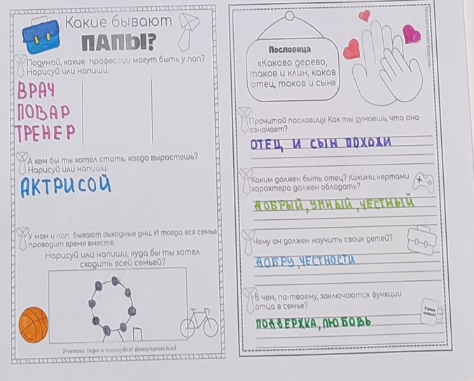 Какие бывают
ПАПЫ?
Подумай, какие профессии могут быть у пап?
Нарисуй или напиши.
ВРАЧ
ПОВАР
ТРЕНЕР
А кем бы ты хотел стать, когда вырастешь?
Нарисуй или напиши.
АКТРИСОЙ
У мам и пап бывают выходные дни. И тогда вся семья
проводит время вместе.
Нарисуй или напиши, куда бы ты хотел
сходить всей семьей?
Пословица
«Каково дерево,
таков и клин, каков
отец, таков и сын»
Прочитай пословицу. Как ты думаешь, что она
означает?
ОТЕЦ И СЫН ПОХОЖИ
Каким должен быть отец? Какими чертами
характера должен обладать?
ДОБРЫЙ, УМНЫЙ, ЧЕСТНЫЙ
Чему он должен научить своих детей?
ДОБРУ, ЧЕСТНОСТИ
В чем, по-твоему, заключаются функции
отца в семье?
ПОДДЕРЖКА, ЛЮБОВЬ